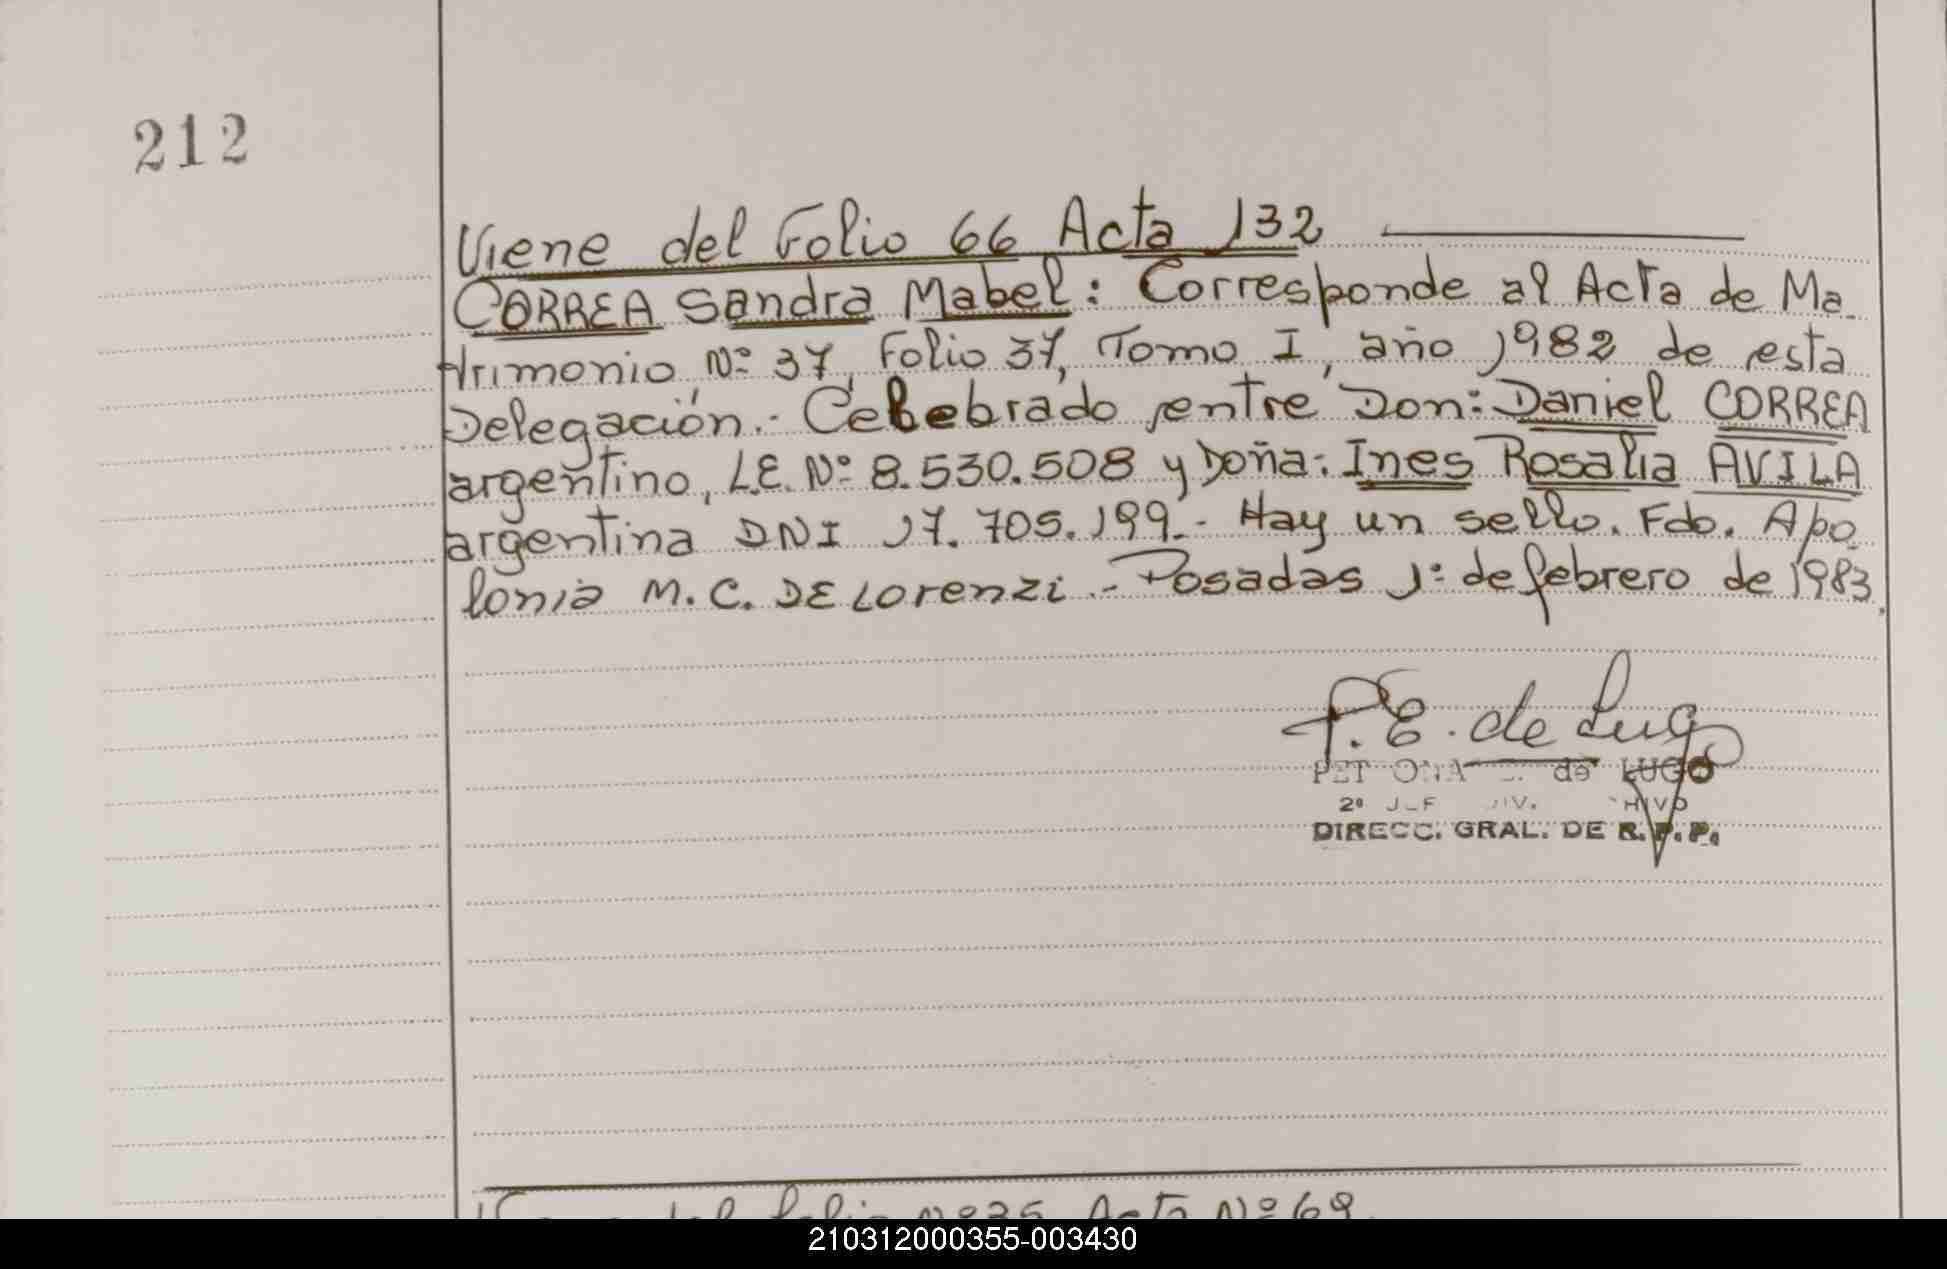 212
Viene del Folio 66 Acta 132
CORREA Sandra Mabel: Corresponde al Acta de Ma
trimonio Nº 37, Folio 37, Tomo I, año 1982 de esta
Delegación.- Celebrado entre Don: Daniel CORREA
argentino, L.E. Nº 8.530.508 y Doña: Ines Rosalia AVILA
argentina DNI 17.705.199.- Hay un sello. Fdo. Apo
lonia M.C. DE LOrenzi.- Posadas 1º de febrero de 1983.
P.E. de Lugo
de LUGO
2º
DIRECC. GRAL. DE R.P.P.
del folio Nº Acta Nº 69
210312000355-003430